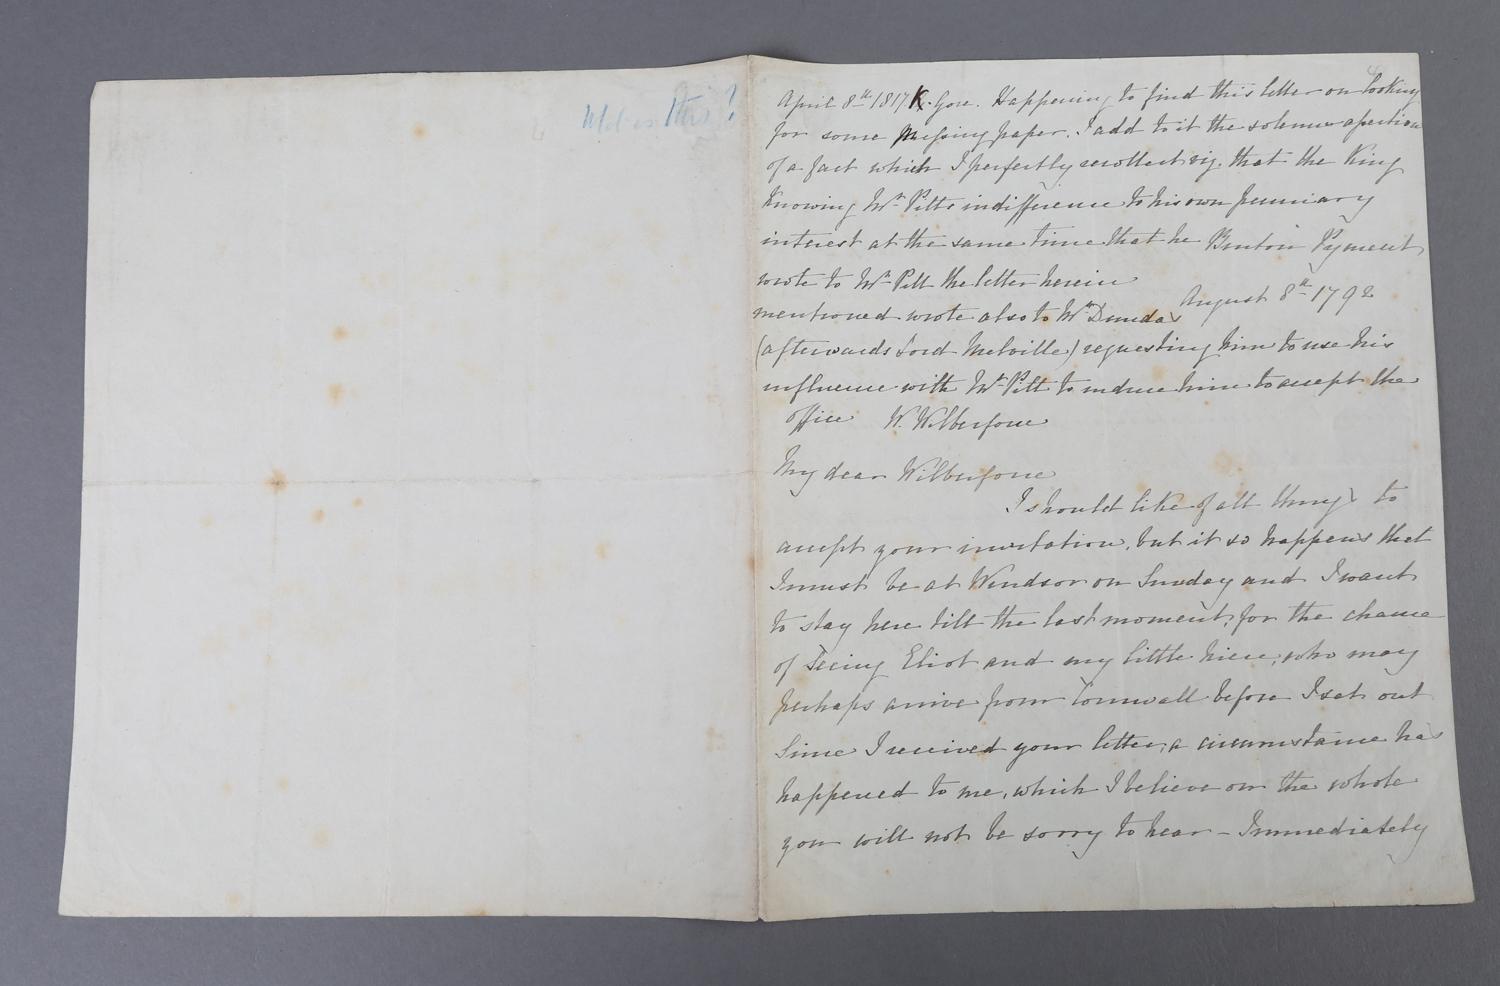 What is this?
April 8th 1817 K. Gore. Happening to find this letter on looking
for some missing paper. I add to it the solemn assertion
of a fact which I perfectly recollect viz. that the King
knowing Mr Pitts indifference to his own pecuniary
interest at the same time that he Burton Pynsent
wrote to Mr Pitt the letter herein
August 8th 1792
mentioned wrote also to Mr Dundas
(afterwards Lord Melville) requesting him to use his
influence with Mr Pitt to induce him to accept the
office W. Wilberforce
My dear Wilberforce
I should like of all things to
accept your invitation, but it so happens that
I must be at Windsor on Sunday and I want
to stay here till the last moment, for the chance
of seeing Eliot and my little niece, who may
perhaps arrive from Cornwall before I set out
Since I received your letter, a circumstance has
happened to me, which I believe on the whole
you will not be sorry to hear – Immediately